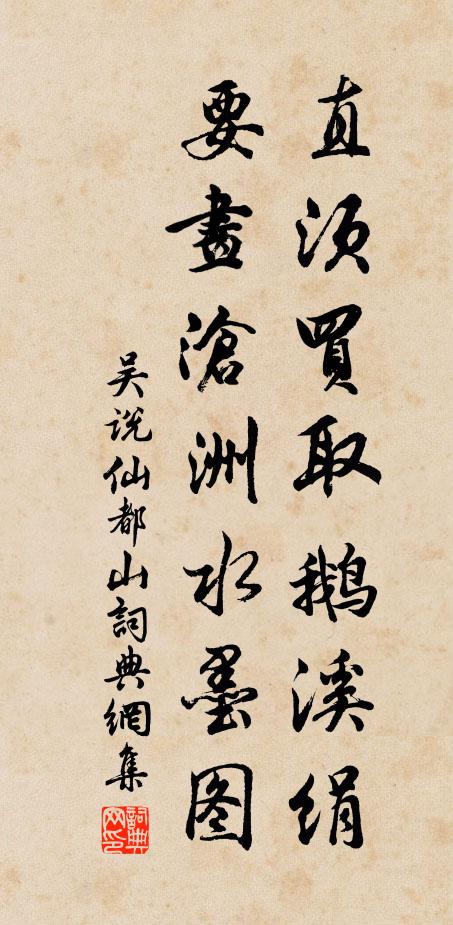 直须買取鹅溪绢
要畫滄洲水墨图
吴说仙都山詞典網集
詞典网印